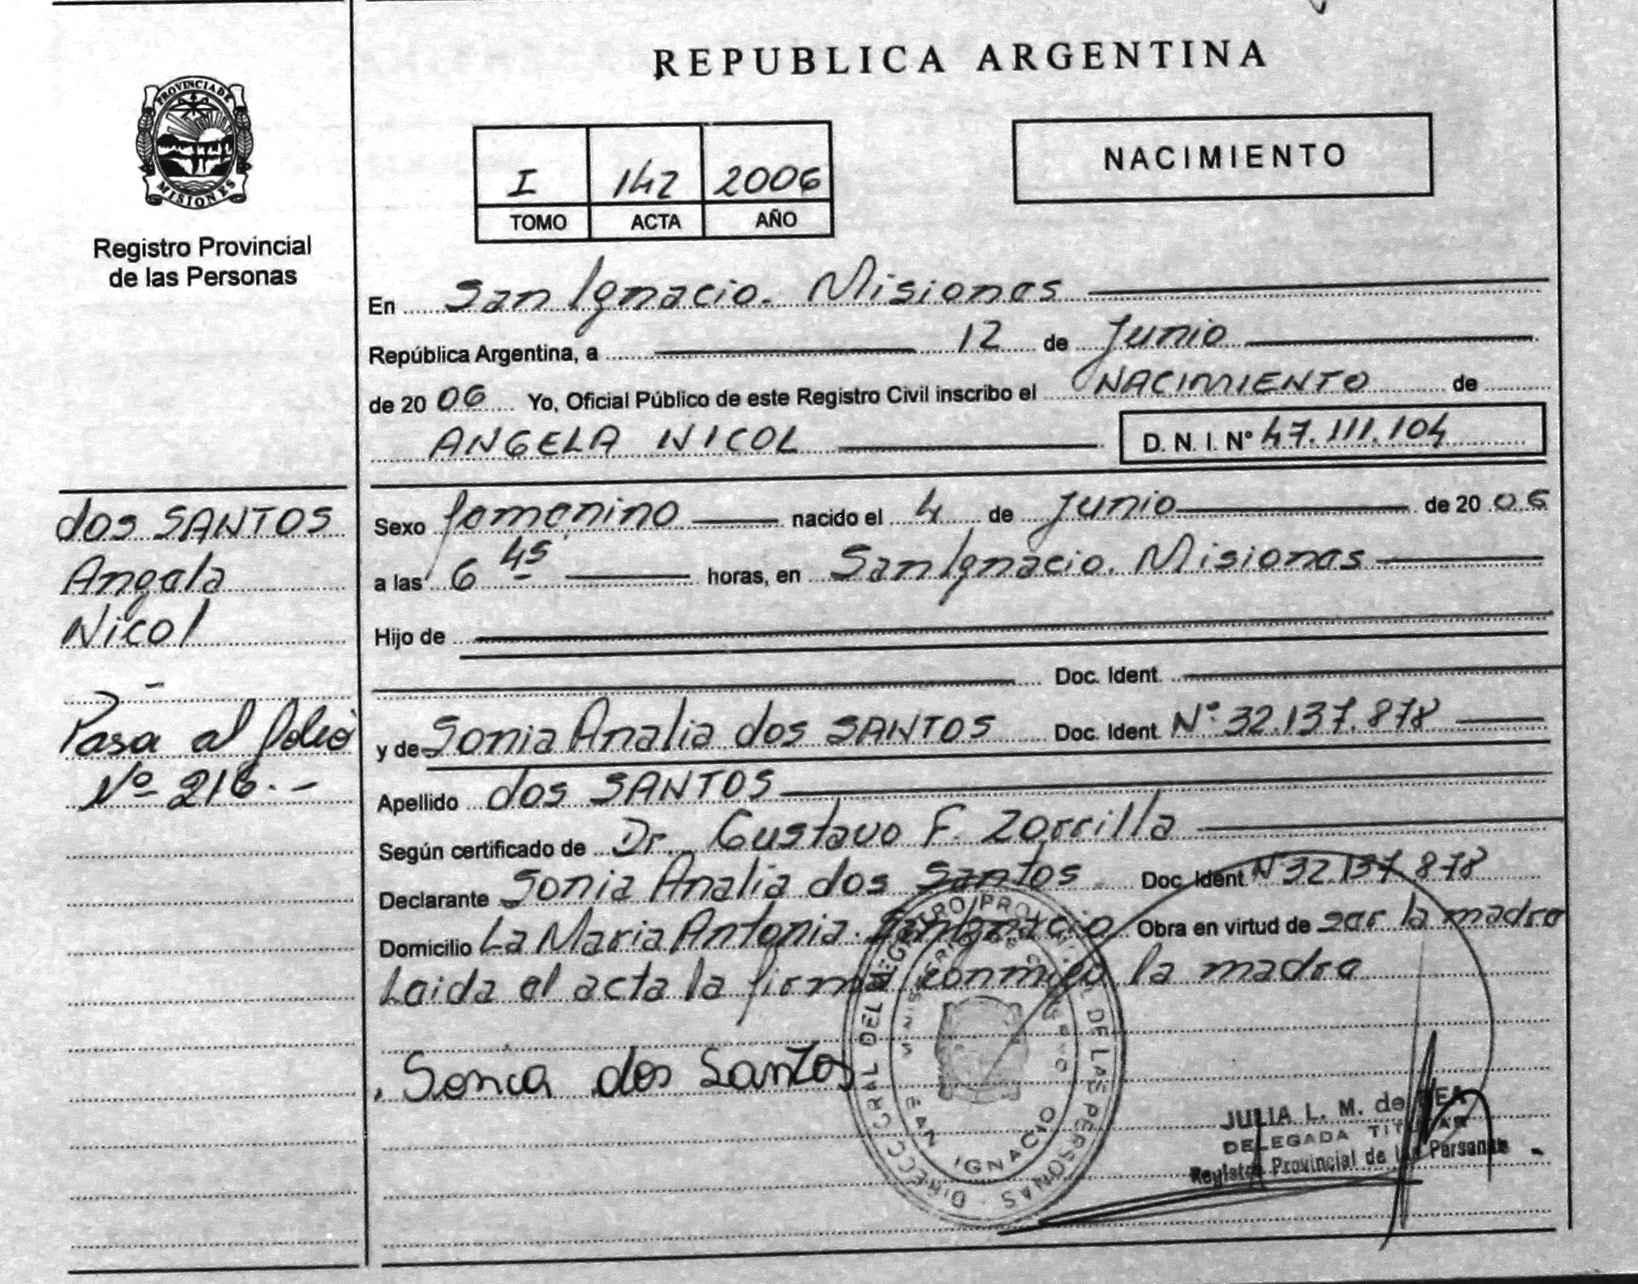 REPUBLICA ARGENTINA
PROVINCIA DE MISIONES
Registro Provincial
de las Personas
I 142 2006
TOMO ACTA AÑO
NACIMIENTO
En San Ignacio. Misiones
República Argentina, a 12 de Junio
de 2006 Yo, Oficial Público de este Registro Civil inscribo el NACIMIENTO de
ANGELA NICOL D. N. I. Nº 47.111.104
dos SANTOS
Angela
Nicol
Pasa al folio
Nº 216.-
Sexo femenino nacido el 4 de Junio de 2006
a las 6 45 horas, en San Ignacio. Misiones
Hijo de
Doc. Ident.
y de Sonia Analia dos SANTOS Doc. Ident. Nº 32.137.878
Apellido dos SANTOS
Según certificado de Dr. Gustavo F. Zorrilla
Declarante Sonia Analia dos Santos Doc. Ident. N 32.137.878
Domicilio La Maria Antonia. San Ignacio Obra en virtud de ser la madre
Leida el acta la firma conmigo la madre
Sonia dos Santos
DIRECC. GRAL DEL REGISTRO PROVINCIAL DE LAS PERSONAS
SAN IGNACIO
JULIA L. M. de
DELEGADA TITULAR
Registro Provincial de las Personas